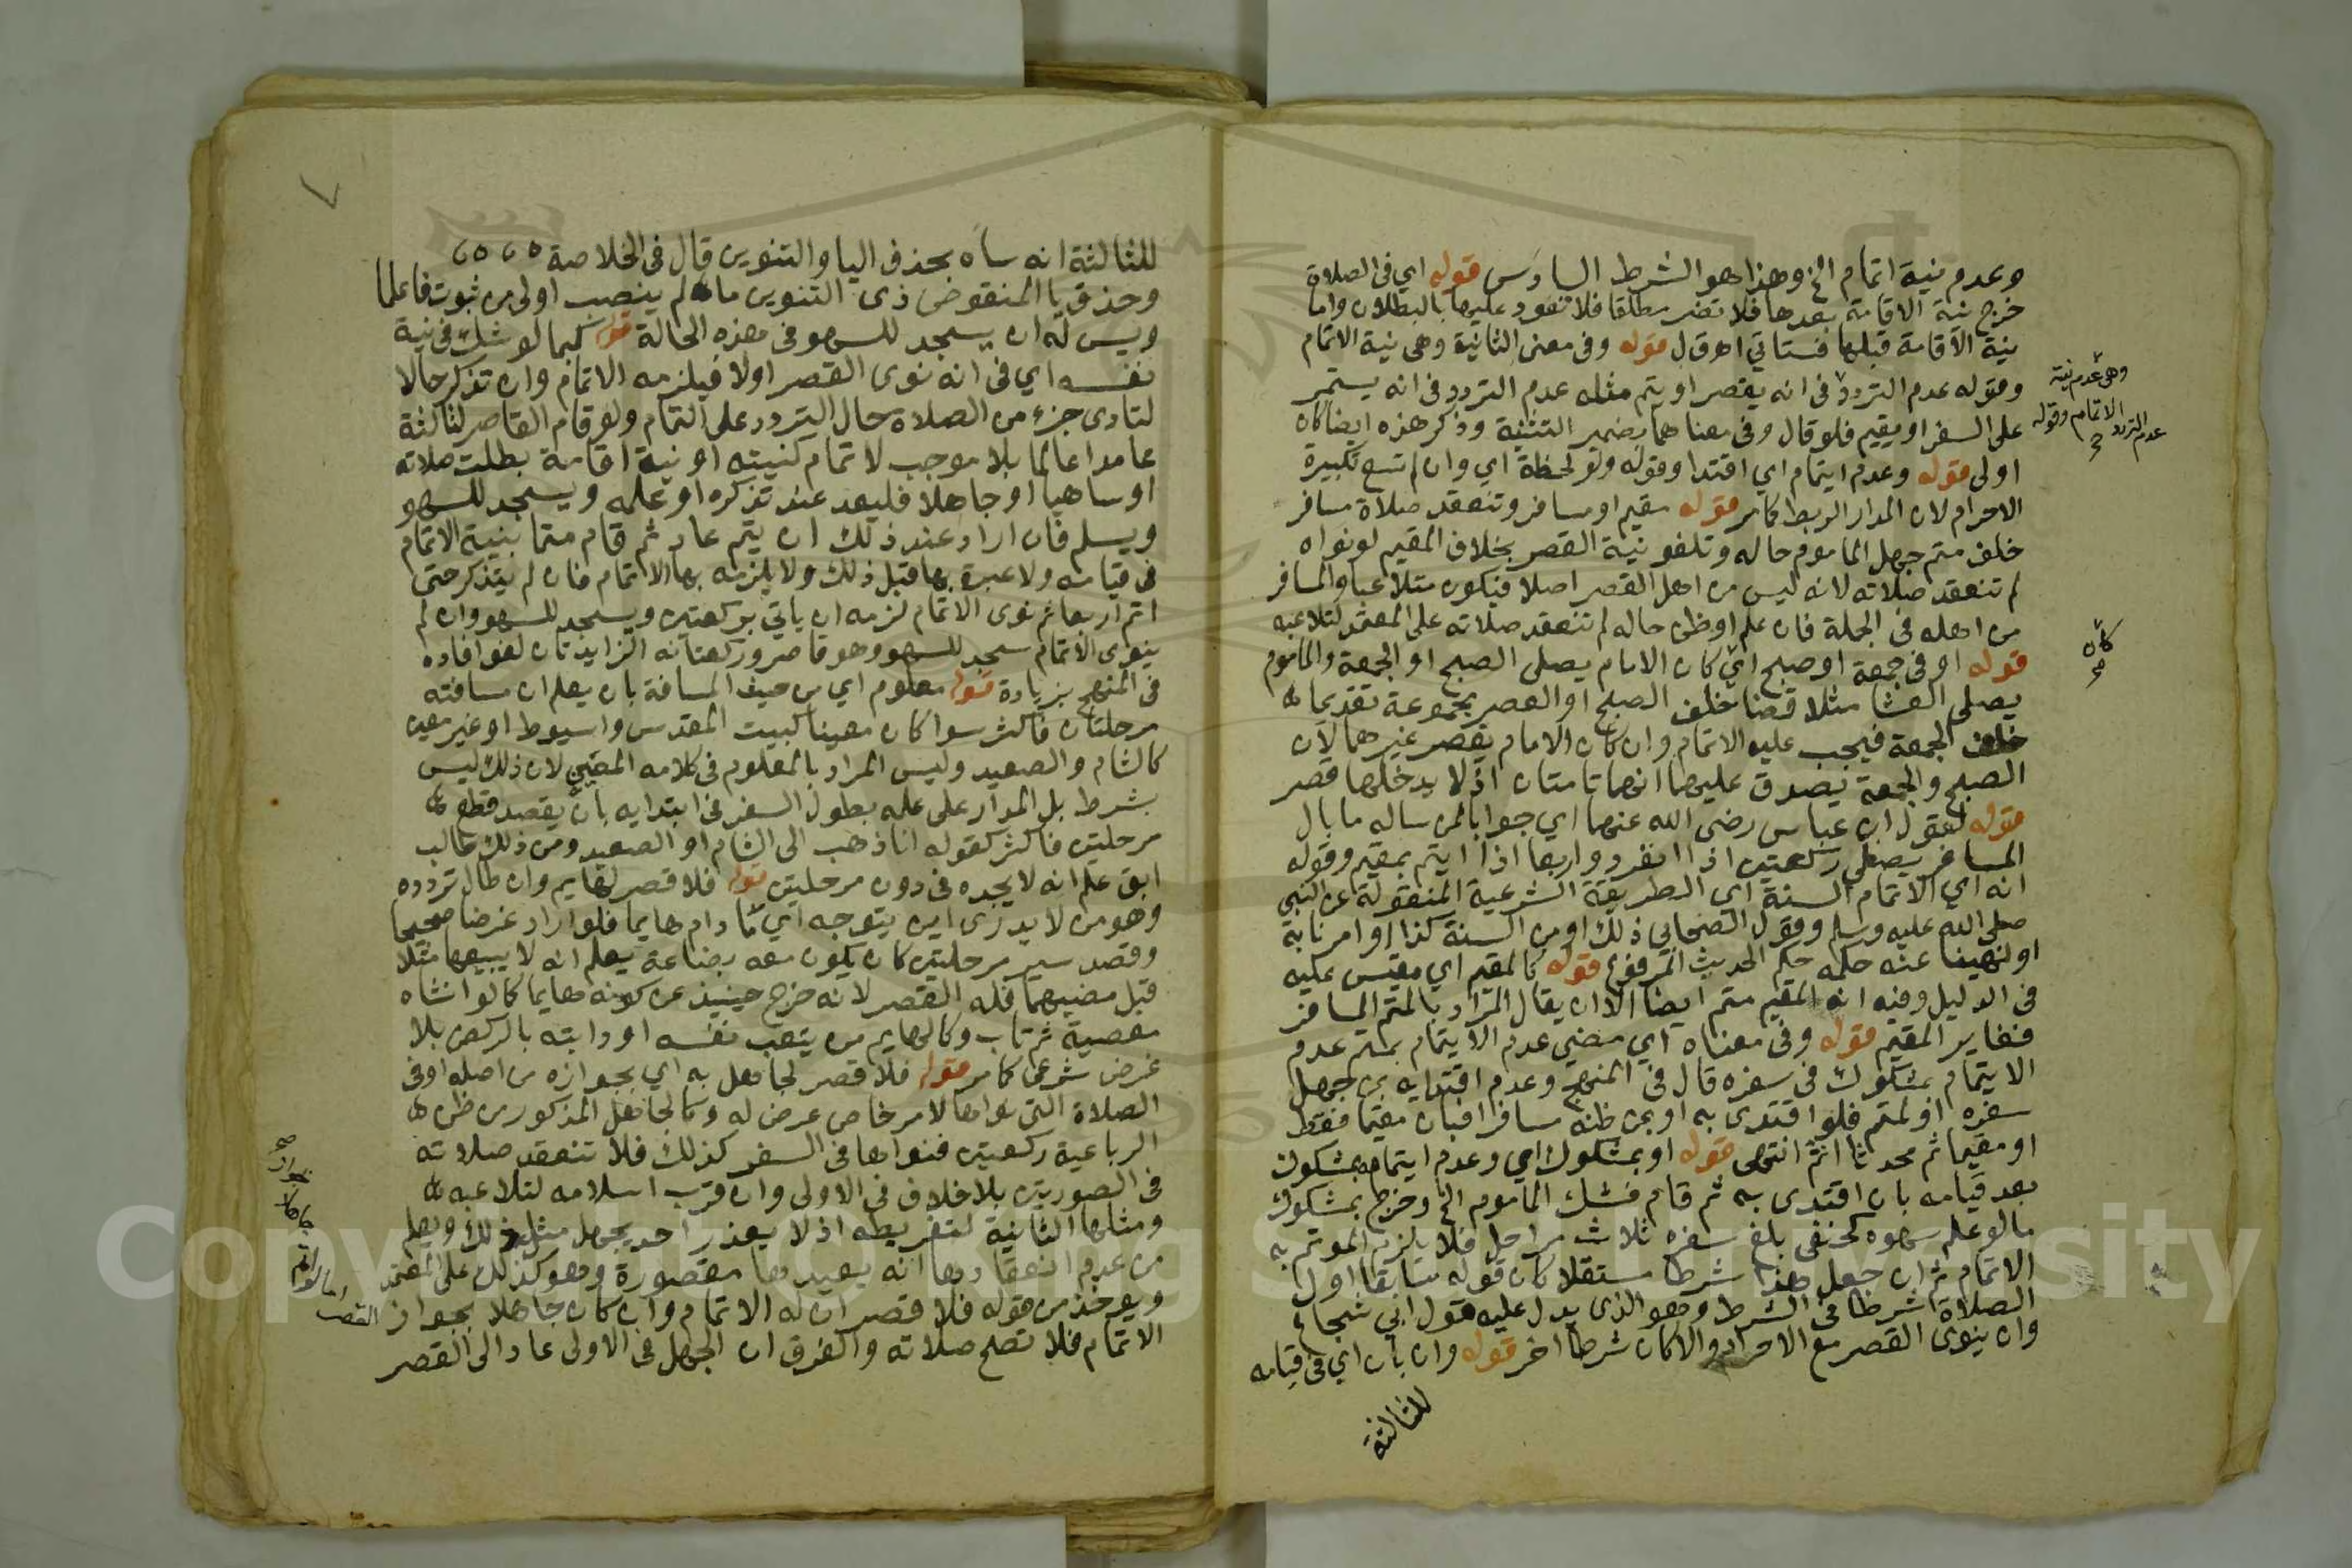 وعدم نية اتمام الخ وهذا هو الشرط السادس قوله اي في الصلاة
خرج نية الاقامة بعدها فلا تضر مطلقا فلا تعود عليها بالبطلان واما
نية الاقامة قبلها فستاتي اهـ ق ل قوله وفي معنى الثانية وهي نية الاتمام
وقوله عدم التردد في انه يقصر او يتم مثله عدم التردد في انه يستمر
على السفر او يقيم فلو قال وفي معناهما بضمير التثنية وذكر هذه ايضا كان
اولى قوله وعدم ايتمام اي اقتدا وقوله ولو لحظة اي وان لم تسع تكبيرة
الاحرام لان المدار الربط كما مر قوله مقيم او مسافر وتنعقد صلاة مسافر
خلف متم جهل الماموم حاله وتلغو نية القصر بخلاف المقيم لو نواه
لم تنعقد صلاته لانه ليس من اهل القصر اصلا فيكون متلاعبا والمسافر
من اهله في الجملة فان علم او ظن حاله لم تنعقد صلاته على المعتمد لتلاعبه
قوله او في جمعة او صبح اي كان الامام يصلي الصبح او الجمعة والماموم
يصلي العشا مثلا قضا خلف الصبح او العصر مجموعة تقديما
خلف الجمعة فيجب عليه الاتمام وان كان الامام يقصر غيرهما لان
الصبح والجمعة يصدق عليهما انهما تامتان اذ لا يدخلهما قصر
قوله لقول ابن عباس رضي الله عنهما اي جوابا لمن ساله ما بال
المسافر يصلي ركعتين اذا انفرد واربعا اذا ايتم بمقيم وقوله
انه اي الاتمام السنة اي الطريقة الشرعية المنقولة عن النبي
صلى الله عليه وسلم وقول الصحابي ذلك او من السنة كذا او امرنا به
او نهينا عنه حكمه حكم الحديث المرفوع قوله كالمقيم اي مقيس عليه
في الدليل وفيه ان المقيم متم ايضا الا ان يقال المراد بالمتم المسافر
فغاير المقيم قوله وفي معناه اي معنى عدم الايتمام بمتم عدم
الايتمام بمشكوك في سفره قال في المنهج وعدم اقتدايه بمن جهل
سفره او بمتم فلو اقتدى به او بمن ظنه مسافرا فبان مقيما فقط
او مقيما ثم محدثا اتم انتهى قوله او بمشكوك اي وعدم ايتمامه بمشكوك
بعد قيامه بان اقتدى به ثم قام فشك الماموم الخ وخرج بمشكوك
ما لو علم سهوه كحنفي بلغ سفره ثلاث مراحل فلا يلزم الموتم به
الاتمام ثم ان جعل هذا شرطا مستقلا كان قوله سابقا اول
الصلاة شرطا في الشرط وهو الذي يدل عليه قول ابي شجاع
وان ينوي القصر مع الاحرام والا كان شرطا اخر قوله وان بان اي في قيامه
للثالثة
وهي عدم نية
الاتمام وقوله
عدم التردد
كان
للثالثة انه ساه بحذف اليا والتنوين قال في الخلاصة
وحذف يا المنقوص ذي التنوين ما لم ينصب اولى من ثبوت فاعلما
ويسن له ان يسجد للسهو في هذه الحالة قوله كما لو شك في نية
نفسه اي في انه نوى القصر اولا فيلزمه الاتمام وان تذكر حالا
لتادي جزء من الصلاة حال التردد على التمام ولو قام القاصر لثالثة
عامدا عالما بلا موجب لاتمام كنيته او نية اقامة بطلت صلاته
او ساهيا او جاهلا فليعد عند تذكره او علمه ويسجد للسهو
ويسلم فان اراد عند ذلك ان يتم عاد ثم قام متما بنية الاتمام
في قيامه ولا عبرة بها قبل ذلك ولا يلزمه بها الاتمام فان لم يتذكر حتى
اتم اربعا ثم نوى الاتمام لزمه ان ياتي بركعتين ويسجد للسهو وان لم
ينوي الاتمام سجد للسهو وهو قاصر وركعتاه الزايدتان لغو افاده
في المنهج بزيادة قوله معلوم اي من حيث المسافة بان يعلم ان مسافته
مرحلتان فاكثر سوا كان معينا كبيت المقدس واسيوط او غير معين
كالشام والصعيد وليس المراد بالمعلوم في كلامه المعين لان ذلك ليس
بشرط بل المدار على علمه بطول السفر في ابتدايه بان يقصد قطع
مرحلتين فاكثر كقوله انا ذاهب الى الشام او الصعيد ومن ذلك طالب
ابق علم انه لا يجده في دون مرحلتين قوله فلا قصر لهايم وان طال تردده
وهو من لا يدري اين يتوجه اي ما دام هايما فلو اراد غرضا صحيحا
وقصد سير مرحلتين كان يكون معه بضاعة يعلم انه لا يبيعها مثلا
قبل مضيهما فله القصر لانه خرج حينيذ عن كونه هايما كما لو انشاه
معصية ثم تاب وكالهايم من يتعب نفسه او دابته بالركض بلا
غرض شرعي كما مر قوله فلا قصر لجاهل به اي بجوازه من اصله او في
الصلاة التي نواها لامر خاص عرض له وكالجاهل المذكور من ظن
الرباعية ركعتين فنواها في السفر كذلك فلا تنعقد صلاته
في الصورتين بلا خلاف في الاولى وان قرب اسلامه لتلاعبه
ومثلها الثانية لتفريطه اذ لا يعذر احد بجهل مثل ذلك ويعلم
من عدم انعقادها انه يعيدها مقصورة وهو كذلك على المعتمد
ويوخذ من قوله فلا قصر ان له الاتمام وان كان جاهلا بجواز
الاتمام فلا تصح صلاته والفرق ان الجهل في الاولى عاد الى القصر
القصر